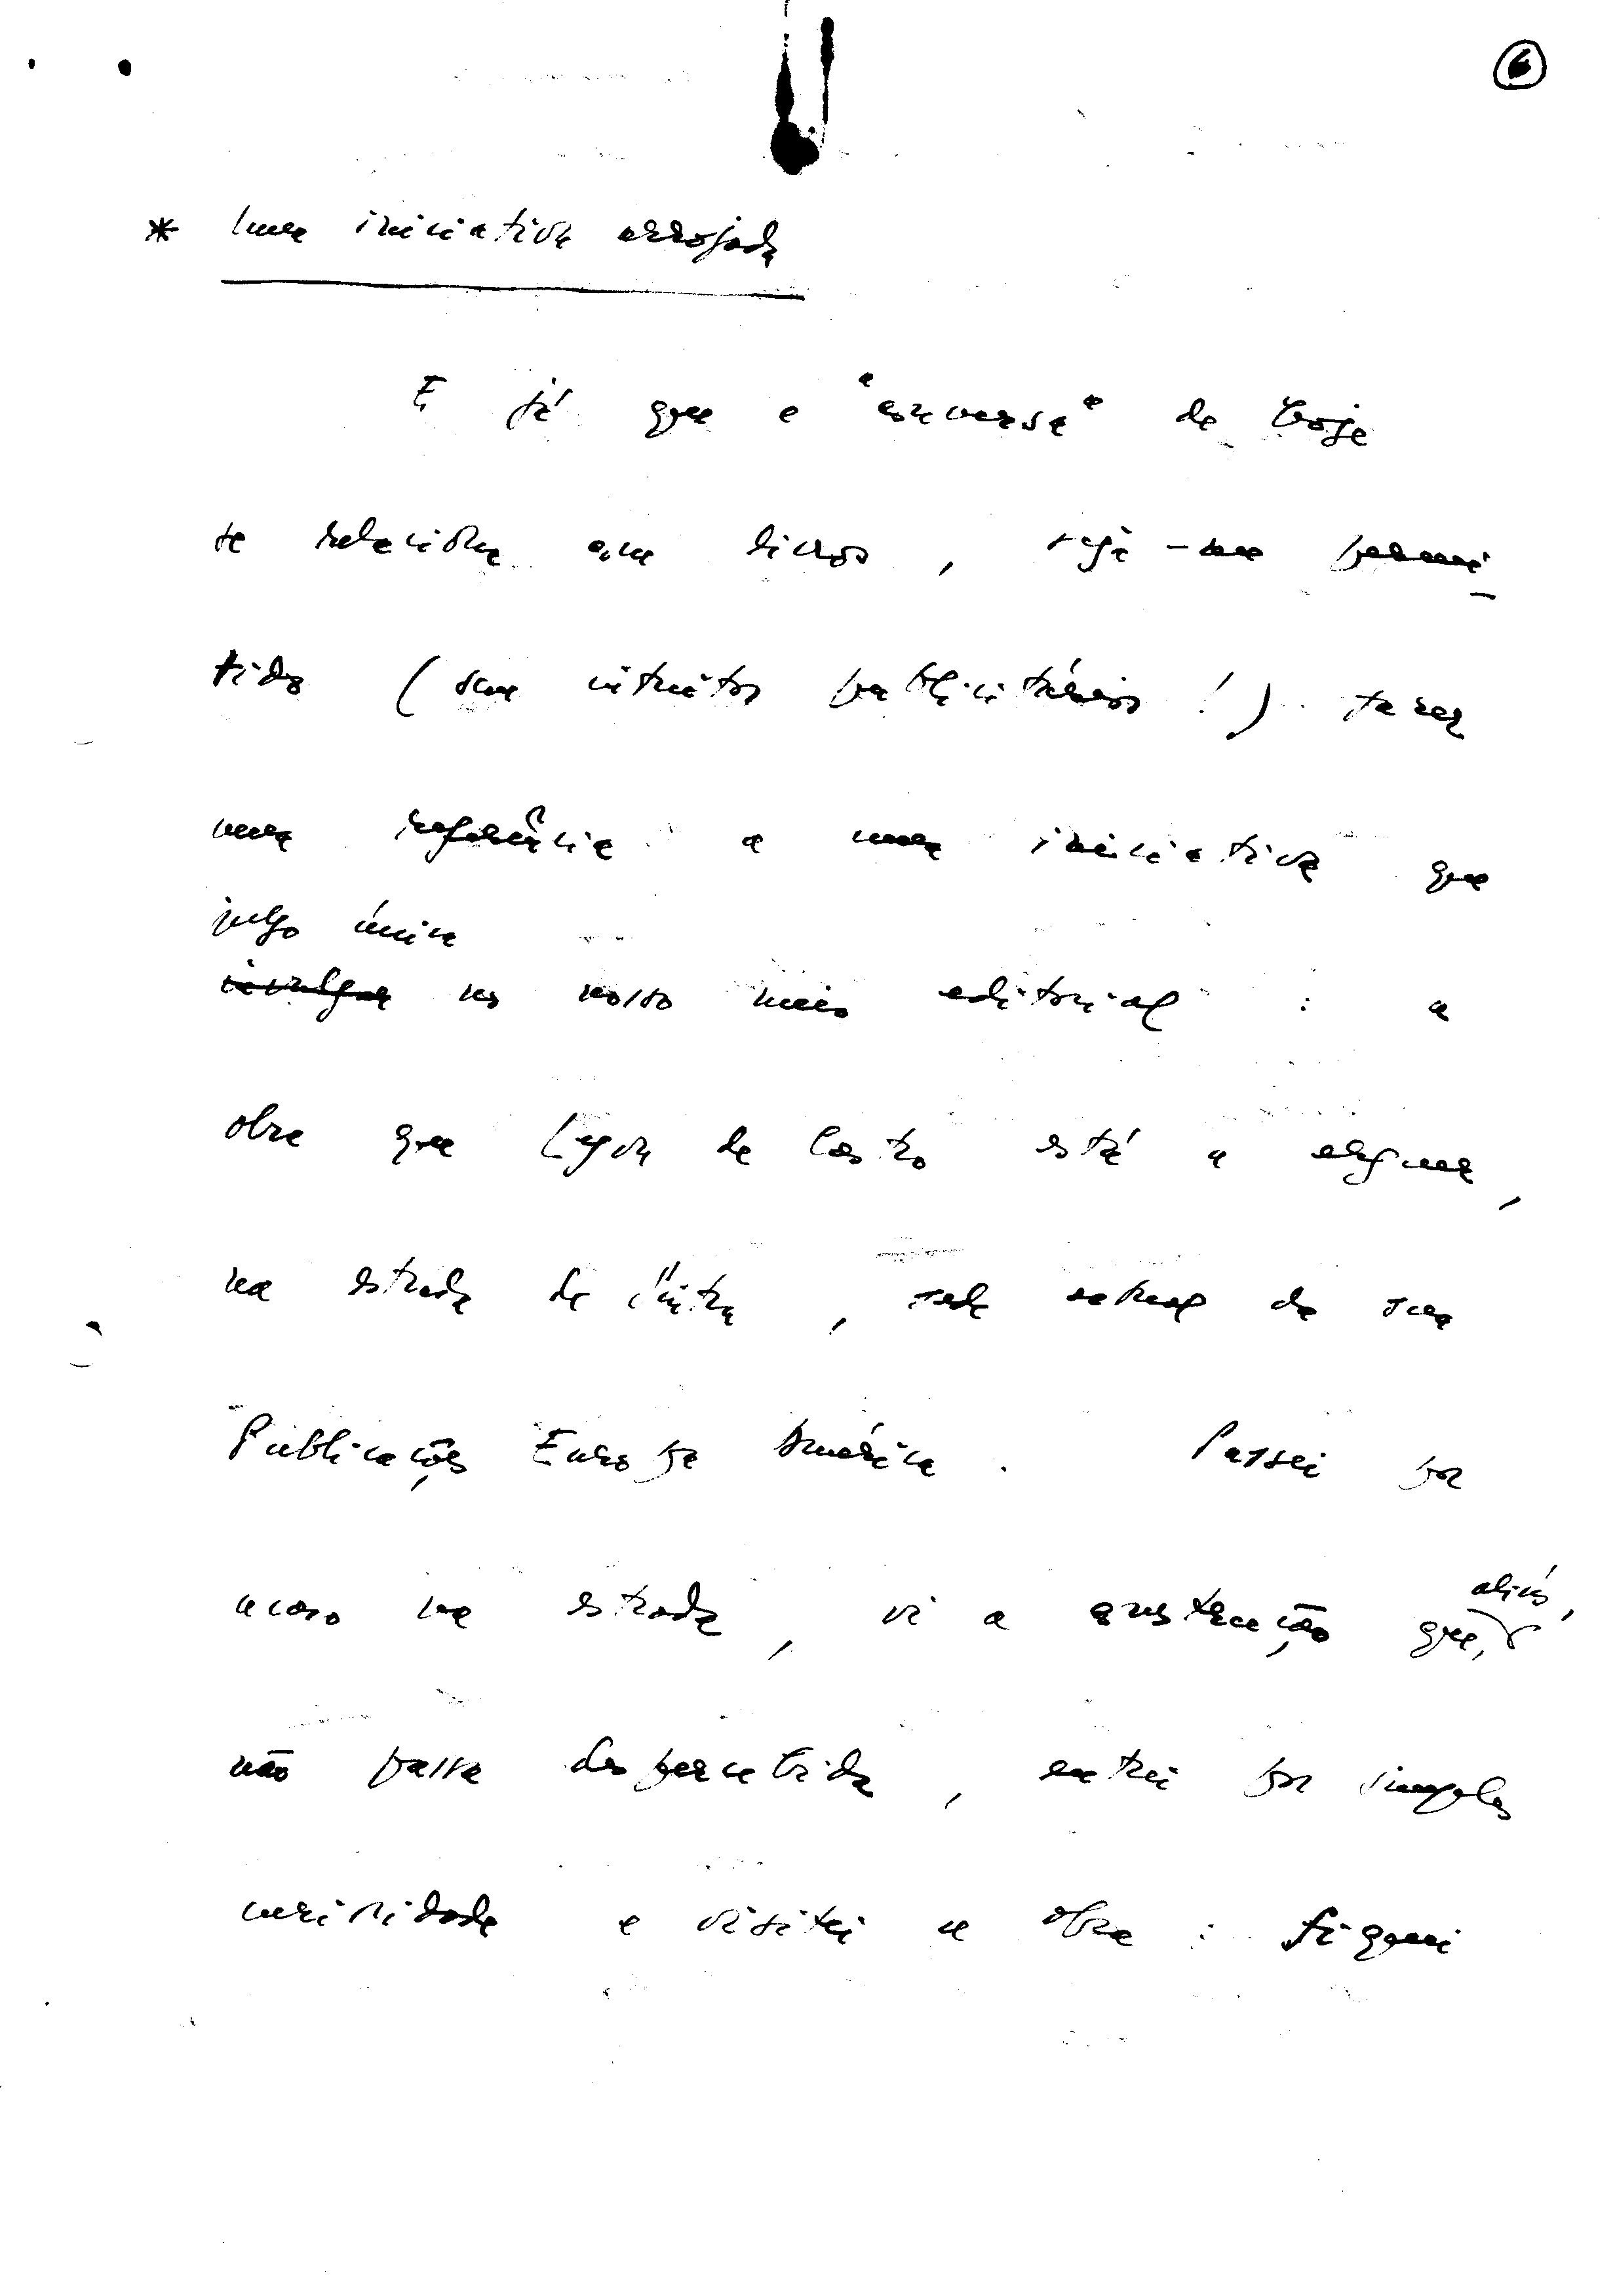 6
* Uma iniciativa arrojada
E já que a "conversa" de hoje
se relaciona com livros, seja-me permi-
tido (sem intuitos publicitários!) fazer
uma referência a uma iniciativa que
julgo única
invulgar no nosso meio editorial : a
obra que Lyon de Castro está a erguer,
na estrada de Sintra, sede actual da sua
Publicações Europa América. Passei por
acaso na estrada, vi a construção que, aliás,
não passa despercebida, entrei por simples
curiosidade e visitei a obra : fiquei